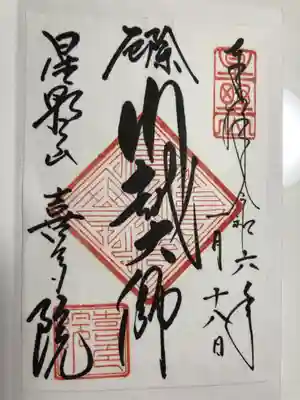 奉拝 令和六年
一月十八日
厄除
川越大師
星野山 喜多院